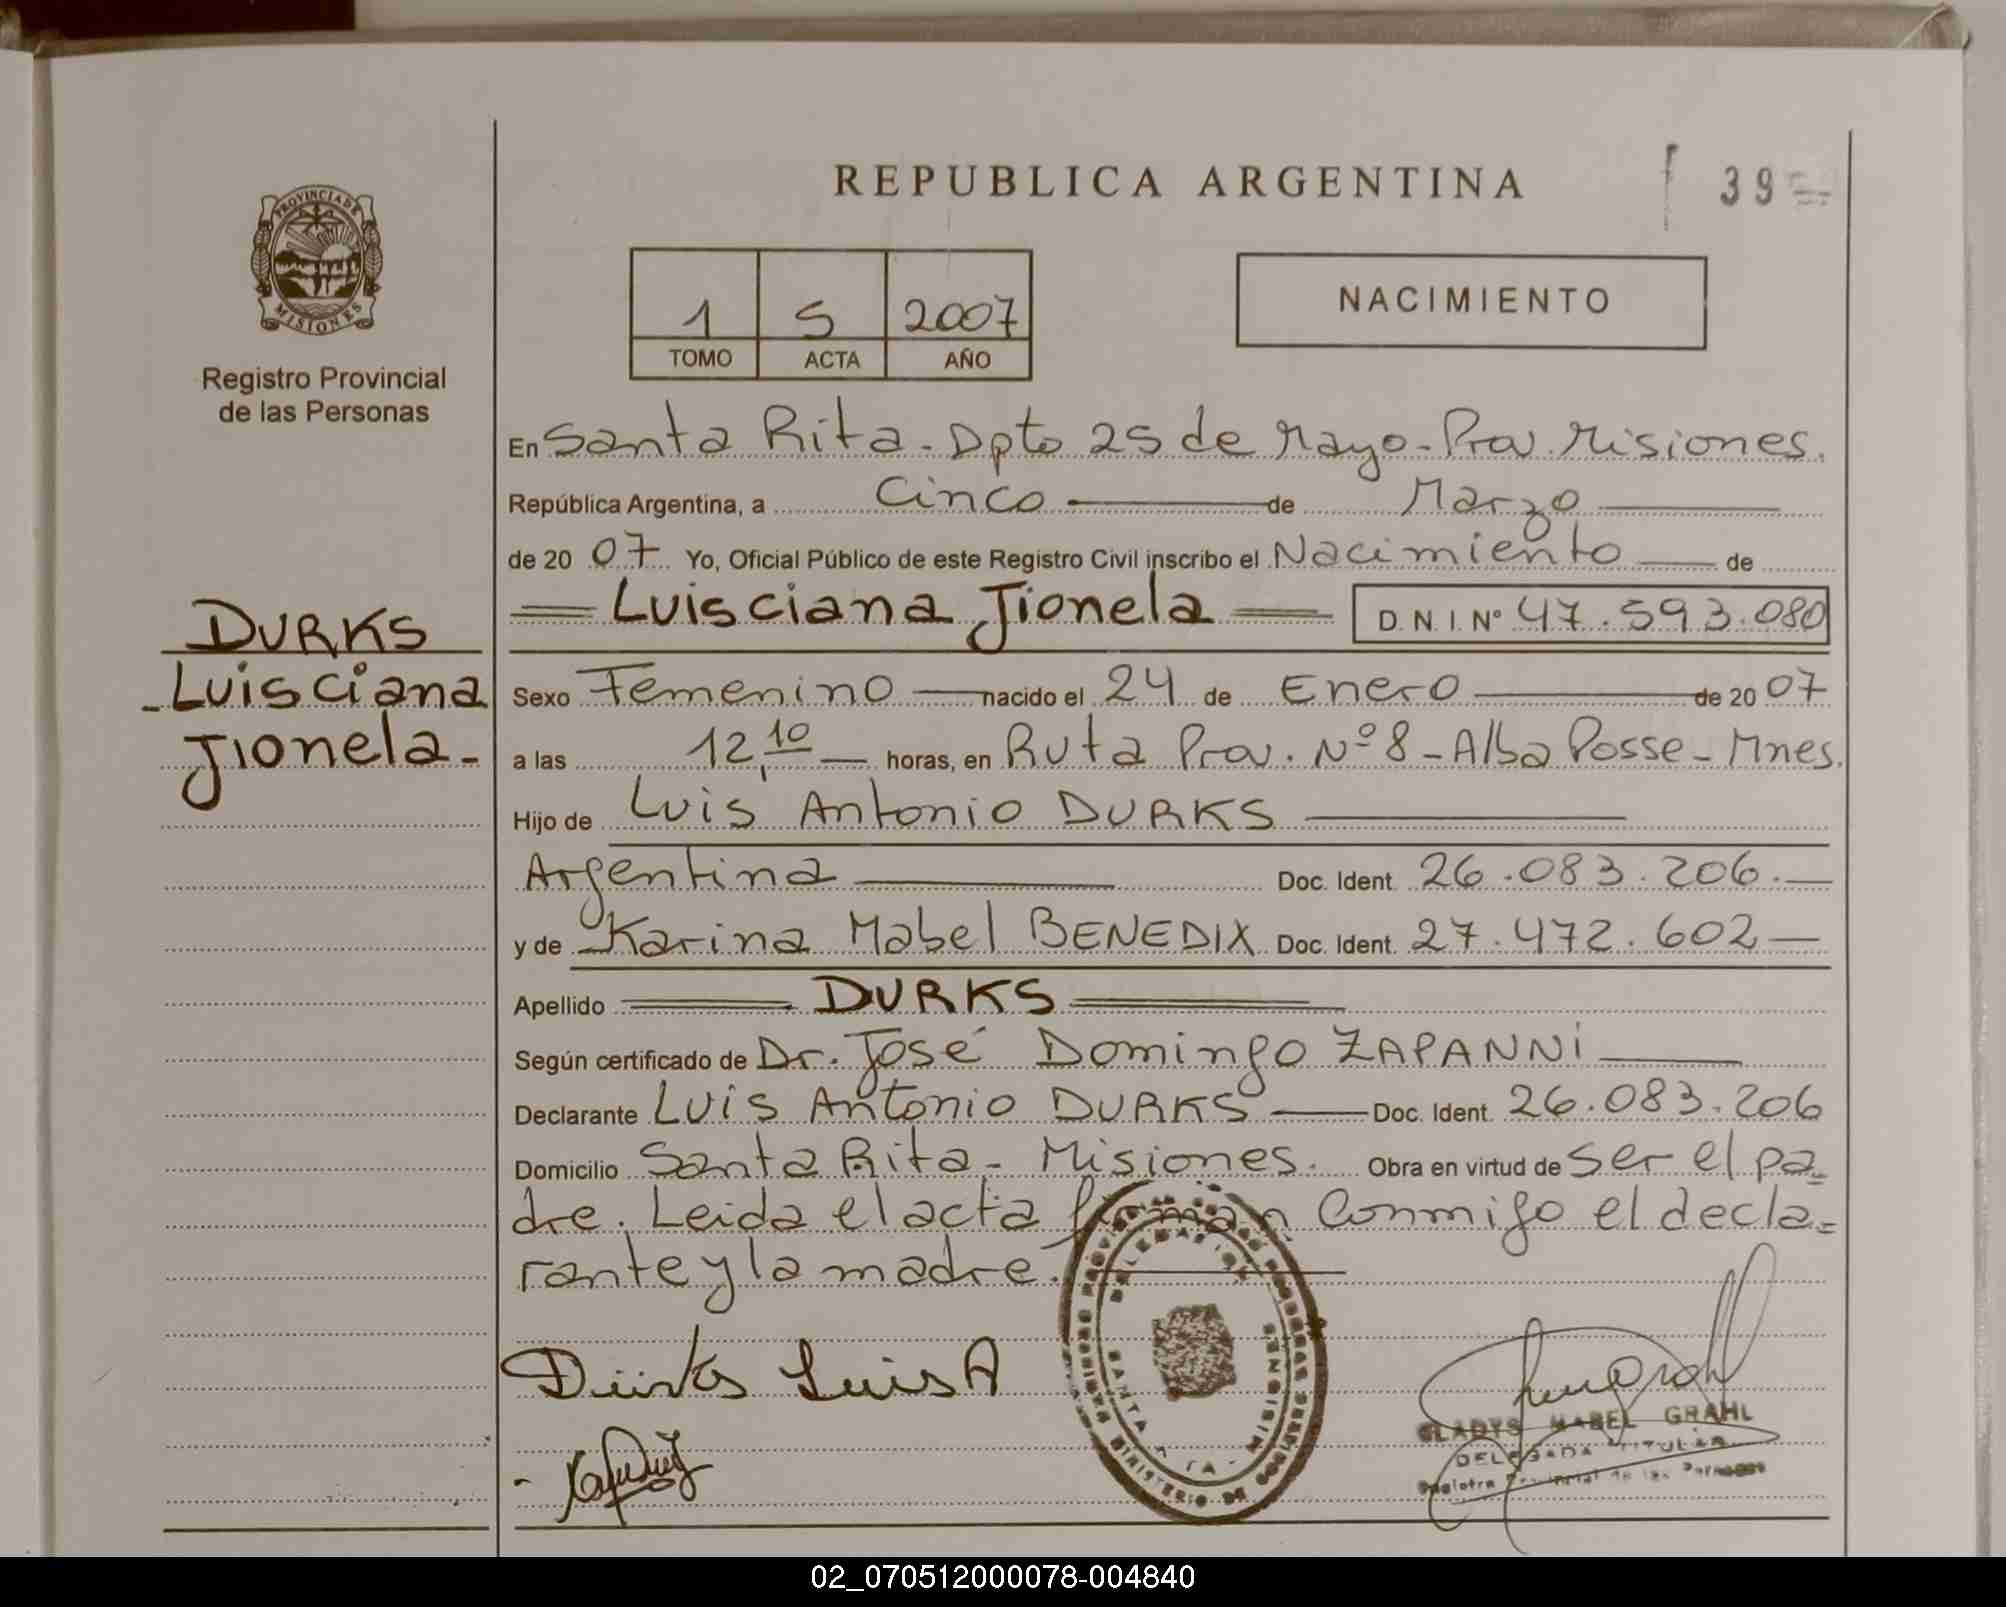 REPUBLICA ARGENTINA
39
PROVINCIA DE
MISIONES
Registro Provincial
de las Personas
1 5 2007
TOMO ACTA AÑO
NACIMIENTO
En Santa Rita - Dpto 25 de Mayo - Prov. Misiones.
República Argentina, a Cinco de Marzo
de 20 07 Yo, Oficial Público de este Registro Civil inscribo el Nacimiento de
Luisciana Jionela D.N.I. Nº 47.593.080
DURKS
Luisciana
Jionela-
Sexo Femenino nacido el 24 de Enero de 20 07
a las 12,10 horas, en Ruta Prov. Nº 8 - Alba Posse - Mnes.
Hijo de Luis Antonio DURKS
Argentina Doc. Ident. 26.083.206.
y de Karina Mabel BENEDIX Doc. Ident. 27.472.602
Apellido DURKS
Según certificado de Dr. José Domingo ZAPANNi
Declarante Luis Antonio DURKS Doc. Ident. 26.083.206
Domicilio Santa Rita - Misiones. Obra en virtud de ser el pa-
dre. Leida el acta firman conmigo el decla=
rante y la madre.
Dürks Luis A
GLADYS MABEL GRAHL
DELEGADA TITULAR
Registro Provincial de las Personas
02_070512000078-004840